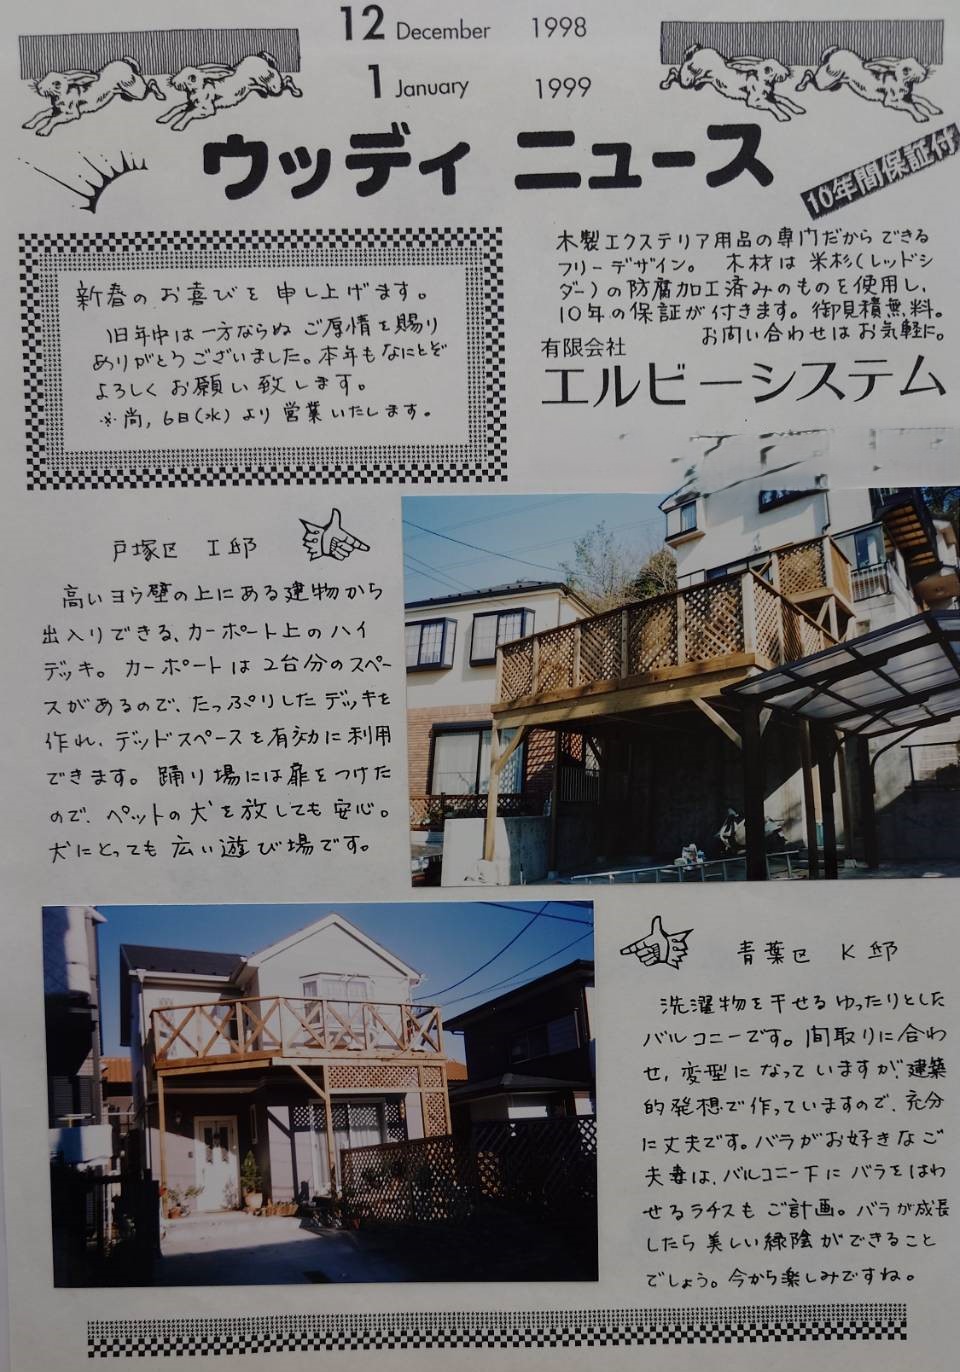 12 December 1998
1 January 1999
ウッディ ニュース
10年間保証付
新春のお喜びを申し上げます。
旧年中は一方ならぬご厚情を賜り
ありがとうございました。本年もなにとぞ
よろしくお願い致します。
※尚,6日(水)より営業いたします。
木製エクステリア用品の専門だからできる
フリーデザイン。木材は米杉(レッドシ
ダー)の防腐加工済みのものを使用し、
10年の保証が付きます。御見積無料。
お問い合わせはお気軽に。
有限会社
エルビーシステム
戸塚区 I邸
高いヨウ壁の上にある建物から
出入りできる、カーポート上のハイ
デッキ。カーポートは2台分のスペー
スがあるので、たっぷりしたデッキを
作れ、デッドスペースを有効に利用
できます。踊り場には扉をつけた
ので、ペットの犬を放しても安心。
犬にとっても広い遊び場です。
青葉区 K邸
洗濯物を干せるゆったりとした
バルコニーです。間取りに合わ
せ、変型になっていますが、建築
的発想で作っていますので、充分
に丈夫です。バラがお好きなご
夫妻は、バルコニー下にバラをはわ
せるラチスもご計画。バラが成長
したら美しい緑陰ができること
でしょう。今から楽しみですね。